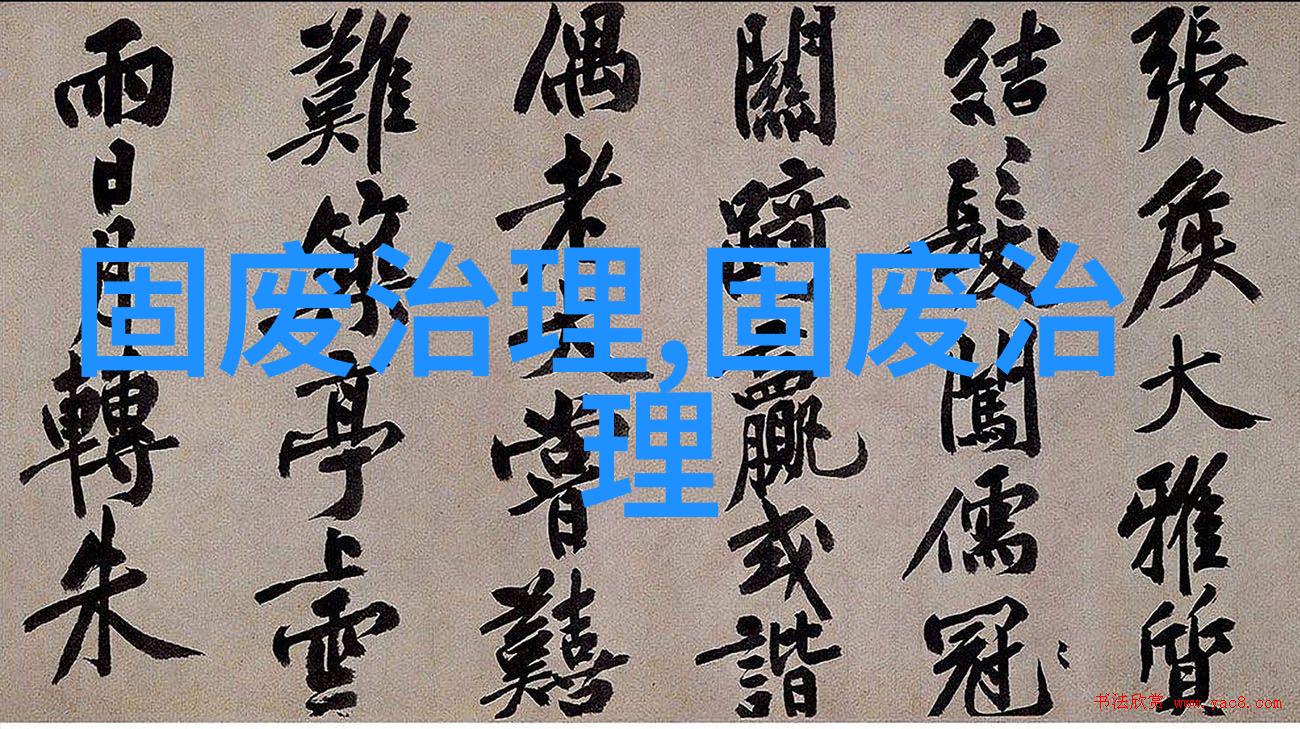 固废治理,固废治
理
張矦大雅質
結髮闖儒冠
關踦或諧
偶老夫嘗囏
難築亭上雲
雨日月轉朱
书法欣赏 www.yac8.com